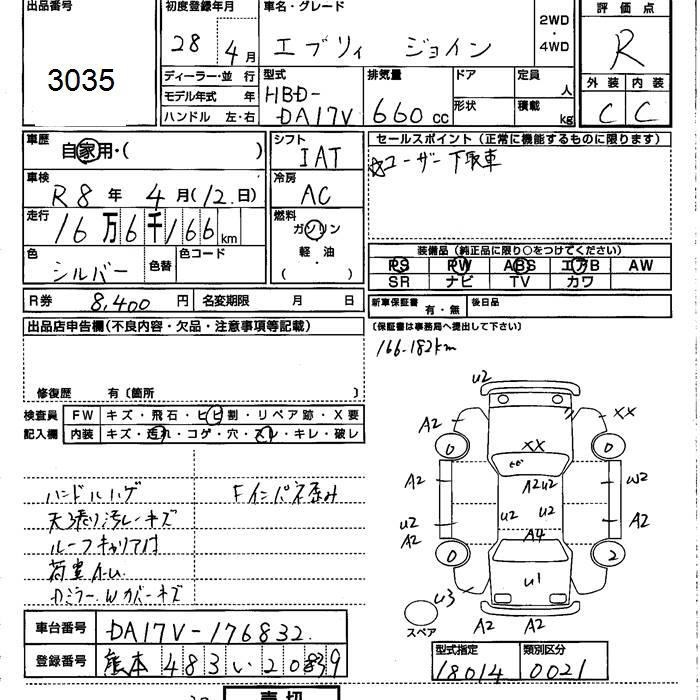 出品番号
3035
初度登録年月
28年 4月
ディーラー・並行
モデル年式 年
ハンドル 左・右
車名・グレード
エブリイ ジョイン
2WD
・
4WD
型式
HBD-
DA17V
排気量
660cc
ドア
形状
定員
人
積載
kg
評価点
R
外装 内装
C C
車歴
自家用・( )
車検
R8年 4月(12日)
走行
16万6千166km
色
シルバー
色替
色コード
シフト
IAT
冷房
AC
燃料
ガソリン
軽・油
( )
R券 8,400円
名変期限 月 日
セールスポイント(正常に機能するものに限ります)
☆ユーザー下取車
装備品(純正品に限り○をつけてください)
PS PW ABS エアB AW
SR ナビ TV カワ
新車保証書 有・無
後日品
(保証書は事務局へ提出して下さい)
166-182km
出品店申告欄(不良内容・欠品・注意事項等記載)
修復歴 有〔箇所 〕
検査員
記入欄
FW キズ・飛石・ヒビ割・リペア跡・X要
内装 キズ・汚れ・コゲ・穴・スレ・キレ・破レ
ハンドルハゲ
天張り汚レ・キズ
ルーフキャリア付
荷室A・U
Dミラー、Wカバーキズ
Fインパネ歪み
U2
A2 XX
0 0
XX
ヒビ
A2U2
A2 W2
U2 U2
U2 A2
A2
A4
0 2
U1
U3
A2 A2
スペア
車台番号 DA17V-176832
登録番号 熊本 483 い 2039
型式指定 18014
類別区分 0021
売切